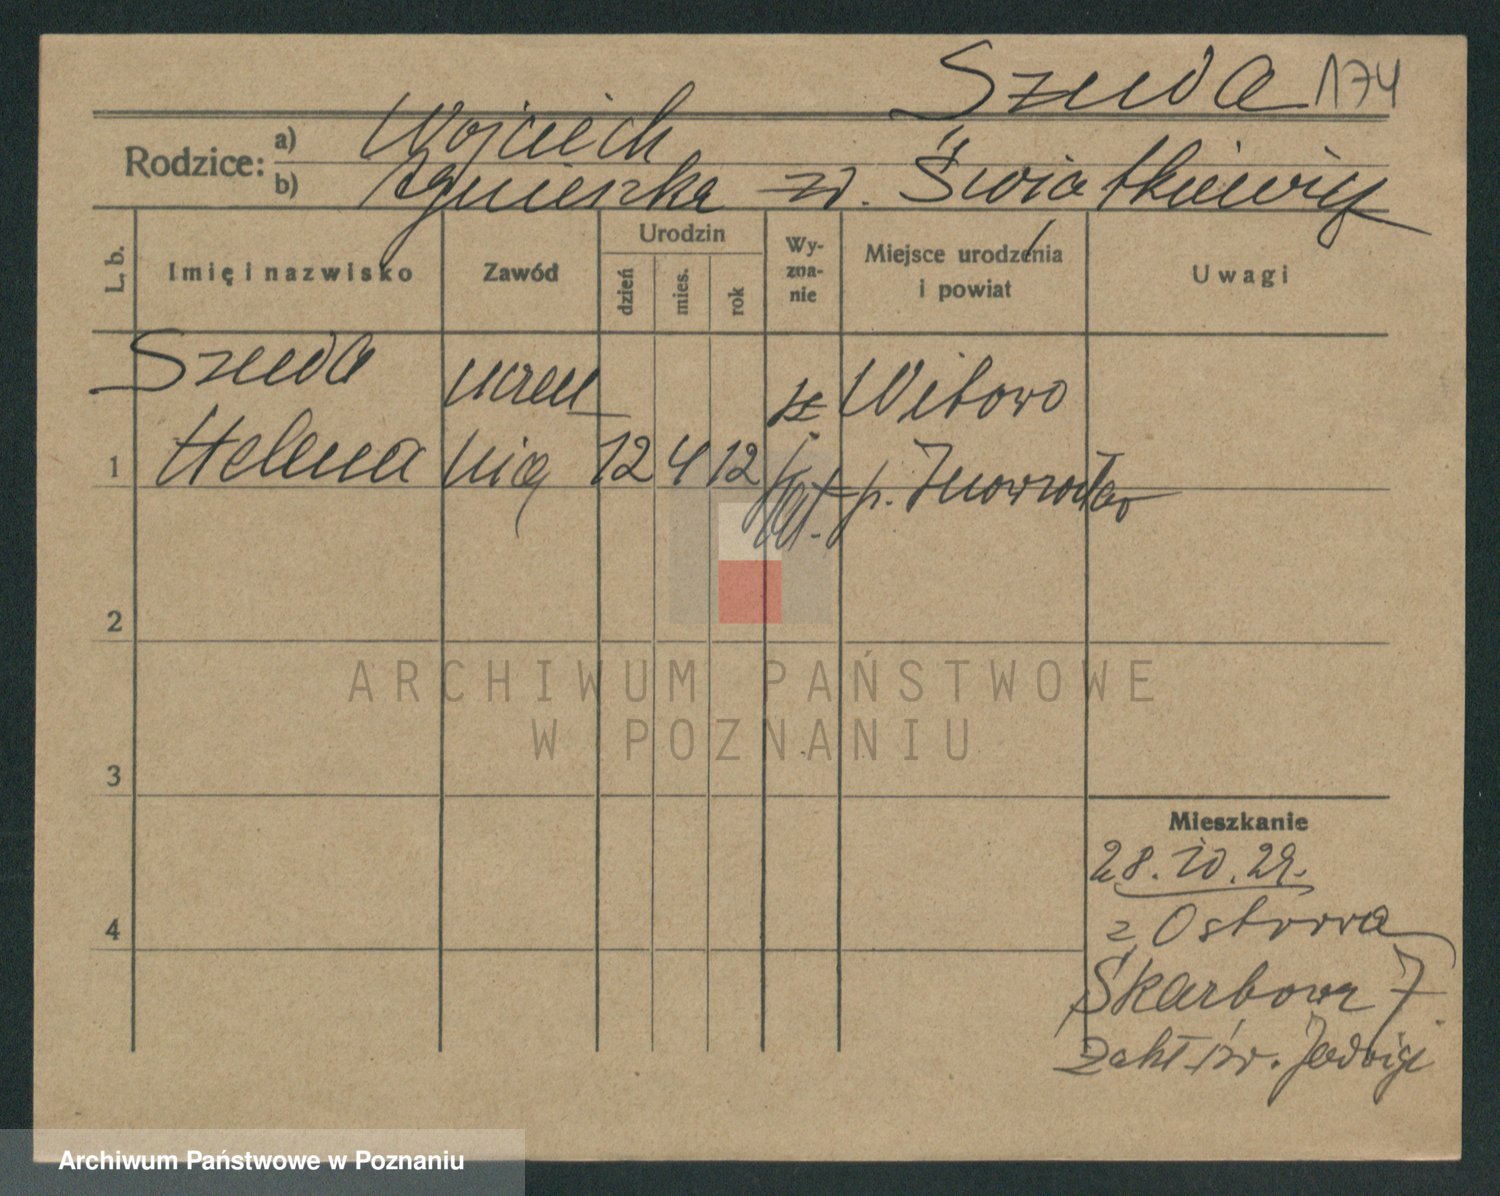 Szuda 174
Rodzice: a) Wojciech
b) Agnieszka z d. Świątkiewicz
L. b.
Imię i nazwisko
Zawód
Urodzin
dzień
mies.
rok
Wy-
zna-
nie
Miejsce urodzenia
i powiat
Uwagi
Szuda
uczen
Witowo
1 Helena
nica
12 4 12
kat.
p. Inowrocław
2
3
4
ARCHIWUM PAŃSTWOWE
W POZNANIU
Mieszkanie
28.10.29.
z Ostrowa
Skarbowa 7
Zakł. św. Jadwigi
Archiwum Państwowe w Poznaniu